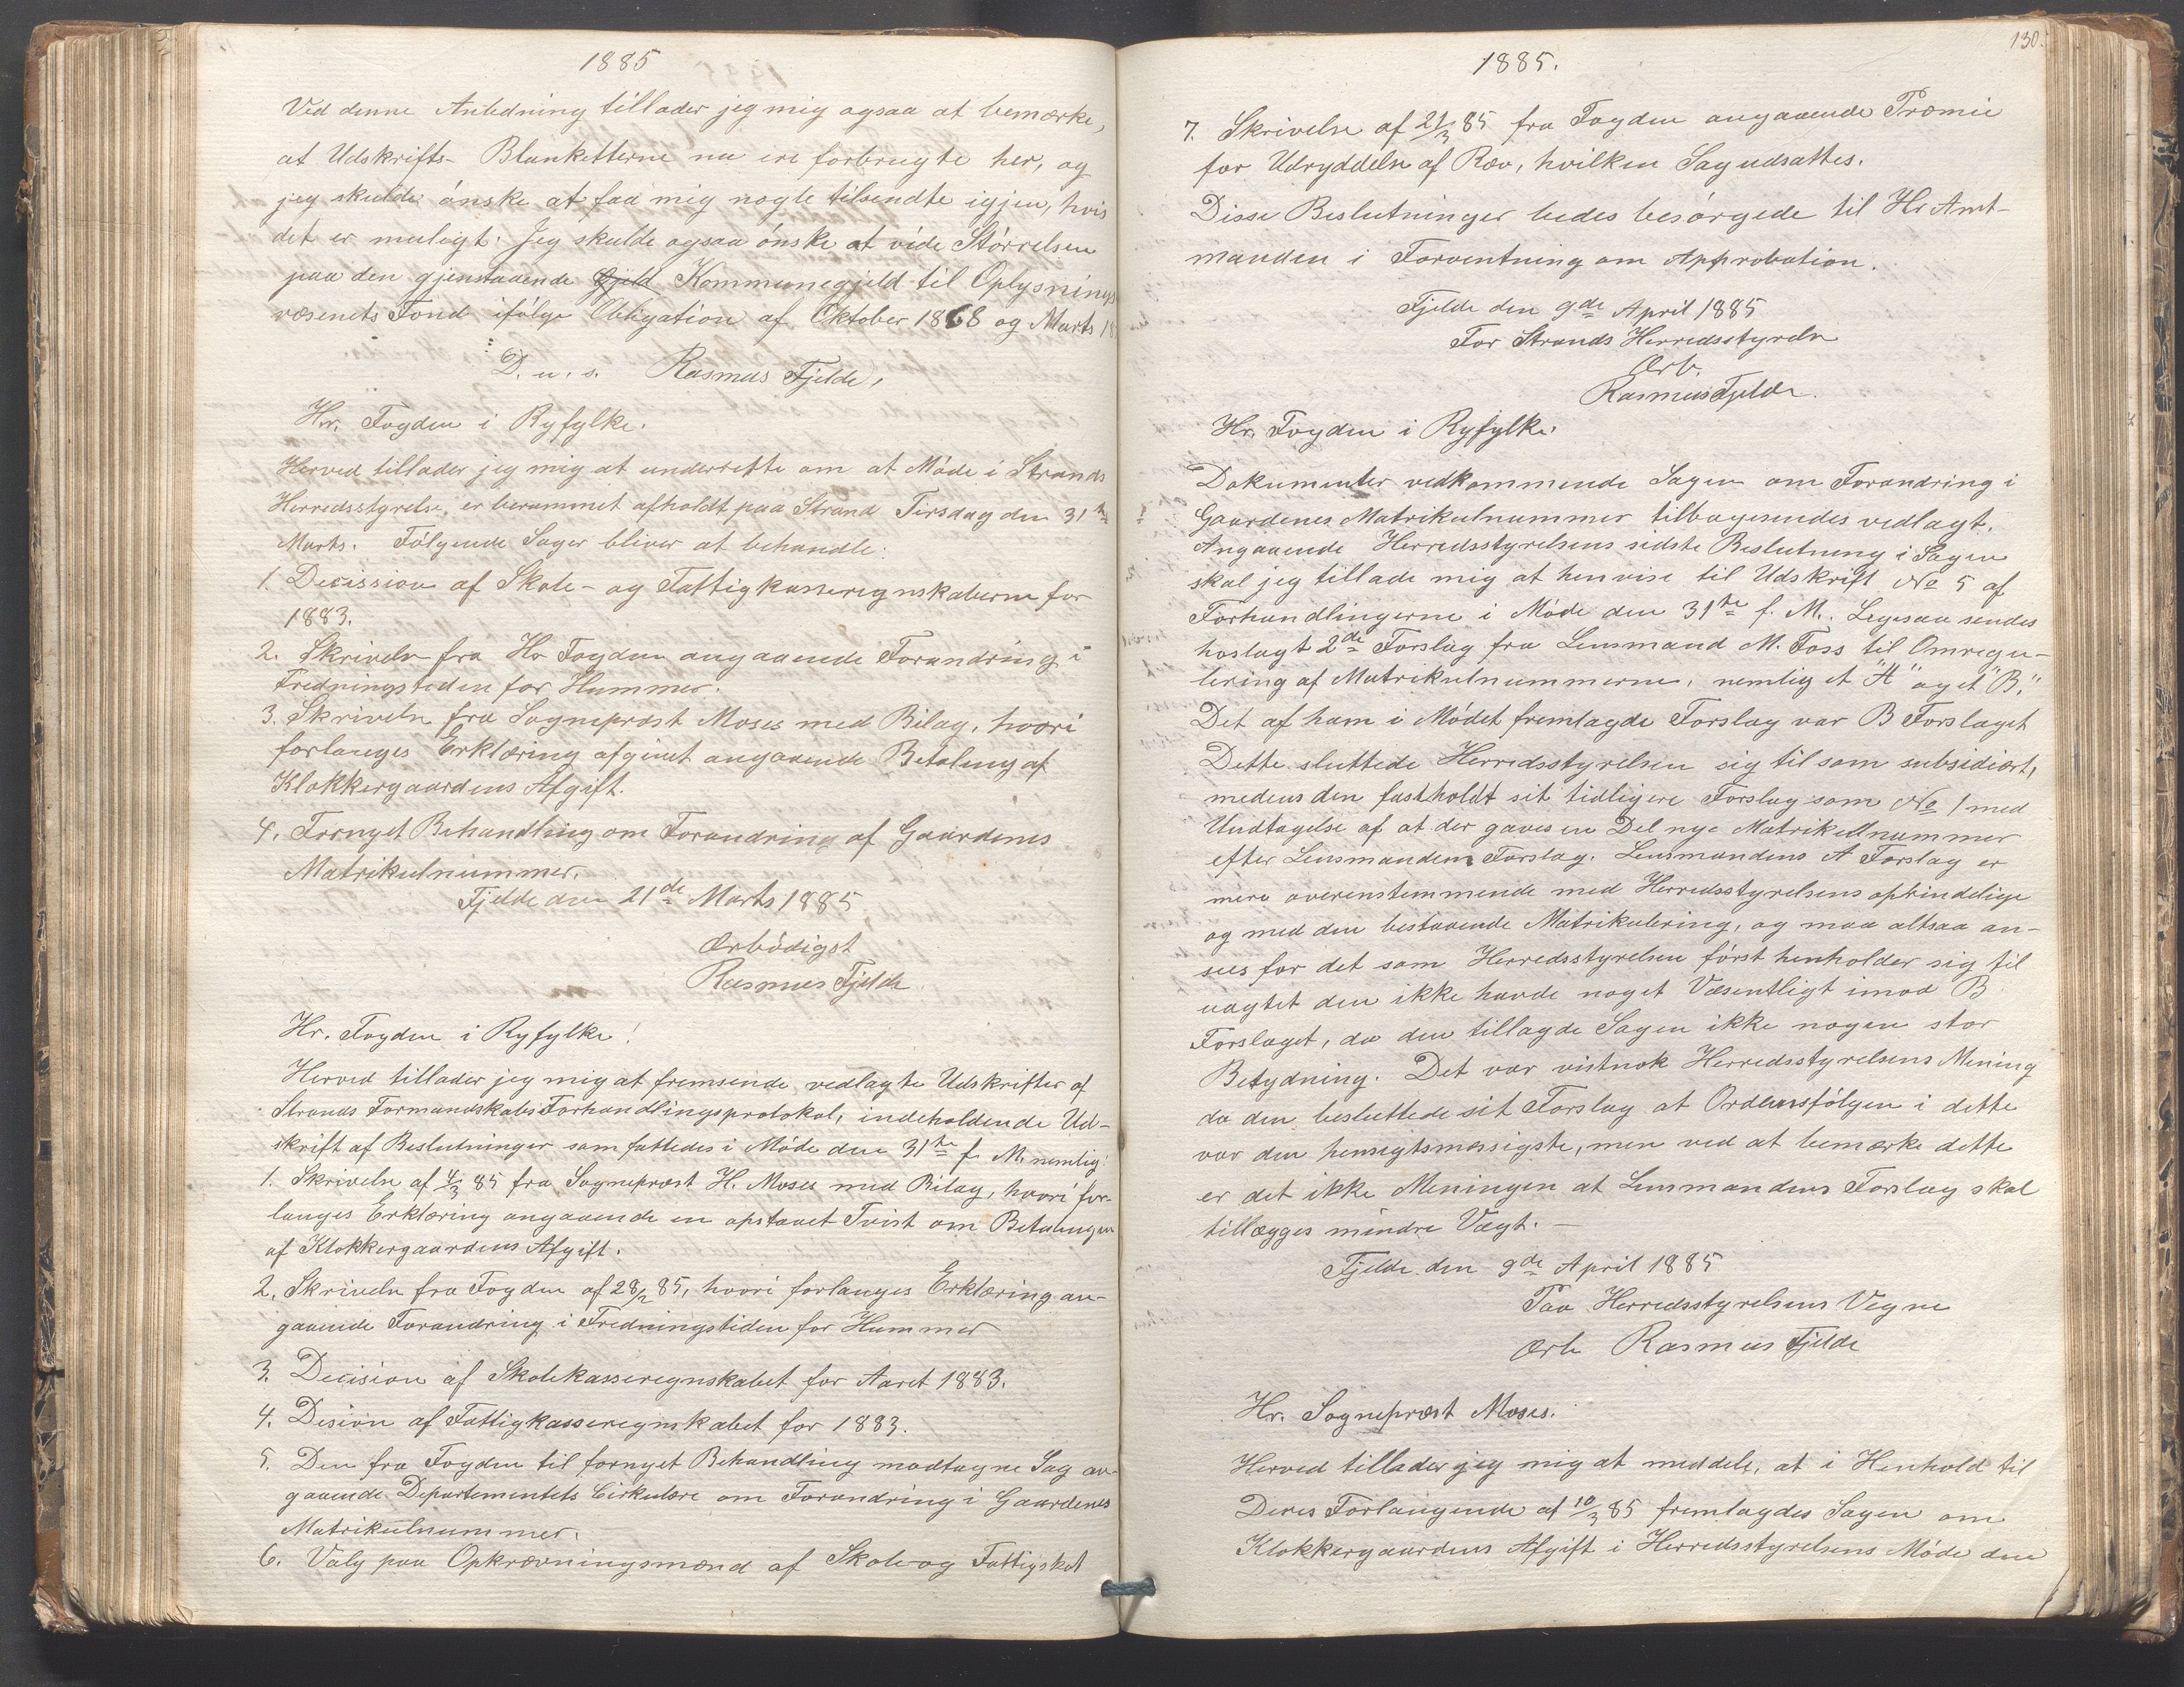 1885
Ved denne Anledning tillader jeg mig ogsaa at bemærke,
at Udskrifts-Blanketterne nu ere forbrugte her, og
jeg skulde ønske at faa mig nogle tilsendte igjen, hvis
det er muligt. Jeg skulde ogsaa ønske at vide Størrelsen
paa den gjenstaaende Gjeld Kommunegjeld til Oplysnings
væsenets Fond ifølge Obligation af Oktober 1868 og Marts 18
D. u. s. Rasmus Fjelde,
Hr. Fogden i Ryfylke.
Herved tillader jeg mig at underrette om at Møde i Strands
Herredsstyrelse, er berammet afholdt paa Strand Tirsdag den 31te
Marts. Følgende Sager bliver at behandle:
1. Decission af Skole- og Fattigkasseregnskaberne for
1883.
2. Skrivelse fra Hr Fogden angaaende Forandring i
Fredningstiden for Hummer.
3. Skrivelse fra Sogneprest Moses med Bilag, hvori
forlanges Erklæring afgivet angaaende Betaling af
Klokkergaardens Afgift.
4. Fornyet Behandling om Forandring af Gaardenes
Matrikulnummer.
Fjelde den 21de Marts 1885
Ærbødigst
Rasmus Fjelde
Hr. Fogden i Ryfylke!
Herved tillader jeg mig at fremsende vedlagte Udskrifter af
Strands Formandskabs Forhandlingsprotokol, indeholdende Ud-
skrift af Beslutninger som fattedes i Møde den 31te f. M. nemlig:
1. Skrivelse af 4/3 85 fra Sogneprest H. Moses med Bilag, hvori for-
langes Erklæring angaaende en opstaaet Tvist om Betalingen
af Klokkergaardens Afgift.
2. Skrivelse fra Fogden af 28/2 85, hvori forlanges Erklæring an-
gaaende Forandring i Fredningstiden for Hummer
3. Decision af Skolekasseregnskabet for Aaret 1883.
4. Desion af Fattigkasseregnskabet for 1883.
5. Den fra Fogden til fornyet Behandling modtagne Sag an-
gaaende Departementets Cirkulære om Forandring i Gaardenes
Matrikulnummer.
6. Valg paa Opkrævningsmænd af Skole og Fattigskat
130.
1885.
7. Skrivelse af 21/3 85 fra Fogden angaaende Præmie
for Udryddelse af Ræv, hvilken Sag udsattes.
Disse Beslutninger bedes besørgede til Hr Amt-
manden i Forventning om Approbation.
Fjelde den 9de April 1885
For Strands Herredsstyrelse
Ærb.
Rasmus Fjelde.
Hr. Fogden i Ryfylke.
Dokumenter vedkommende Sagen om Forandring i
Gaardenes Matrikulnummer tilbagesendes vedlagt.
Angaaende Herredsstyrelsens sidste Beslutning i Sagen
skal jeg tillade mig at henvise til Udskrift No 5 af
Forhandlingerne i Møde den 31te f. M. Ligesaa sendes
hoslagt 2de Forslag fra Lensmand M. Foss til Omregu-
lering af Matrikulnummerne, nemlig et "A" og et "B."
Det af ham i Mødet fremlagde Forslag var B Forslaget
Dette sluttede Herredsstyrelsen sig til som subsidiært,
medens den fastholdt sit tidligere Forslag som No 1 med
Undtagelse af at der gaves en Del nye Matrikulnummer
efter Lensmandens Forslag. Lensmandens A Forslag er
mere overenstemmende med Herredsstyrelsens oprindelige
og med den bestaaende Matrikulering, og maa altsaa an-
sees for det som Herredsstyrelsen først henholder sig til
uagtet den ikke havde noget Væsentligt imod B
Forslaget, da den tillagde Sagen ikke nogen stor
Betydning. Det var vistnok Herredsstyrelsens Mening
da den besluttede sit Forslag at Ordensfølgen i dette
var den hensigtsmæssigste, men ved at bemærke dette
er det ikke Meningen at Lensmandens Forslag skal
tillægges mindre Vægt. —
Fjelde den 9de April 1885
Paa Herredsstyrelsens Vegne
Ærb Rasmus Fjelde
Hr. Sogneprest Moses.
Herved tillader jeg mig at meddele, at i Henhold til
Deres Forlangende af 10/3 85 fremlagdes Sagen om
Klokkergaardens Afgift i Herredsstyrelsens Møde den